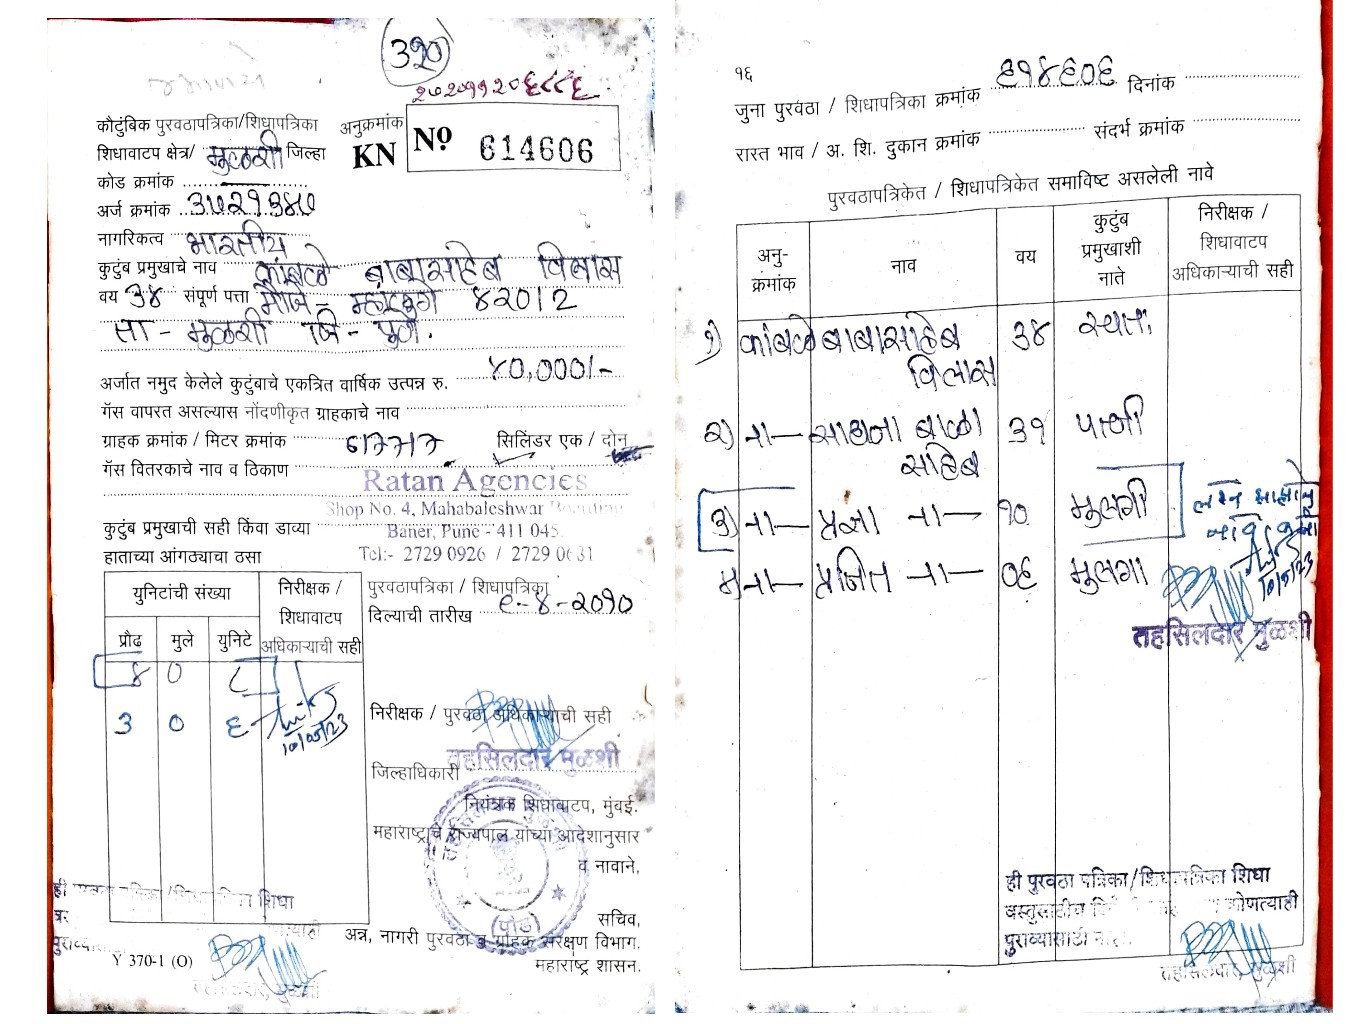 ३२०
कौटुंबिक पुरवठापत्रिका/शिधापत्रिका
अनुक्रमांक
KN
Nº 614606
शिधावाटप क्षेत्र/ मुळशी जिल्हा
कोड क्रमांक
अर्ज क्रमांक
नागरिकत्व भारतीय
कुटुंब प्रमुखाचे नाव कांबळे बाबासाहेब विलास
वय ३४ संपूर्ण पत्ता मौजे - म्हाळुंगे
ता - मुळशी जि - पुणे.
अर्जात नमुद केलेले कुटुंबाचे एकत्रित वार्षिक उत्पन्न रु. ४०,०००/-
गॅस वापरत असल्यास नोंदणीकृत ग्राहकाचे नाव
ग्राहक क्रमांक / मिटर क्रमांक सिलिंडर एक / दोन
गॅस वितरकाचे नाव व ठिकाण
Ratan Agencies
Shop No. 4, Mahabaleshwar
Baner, Pune - 411 045.
Tel:- 2729 0926 / 2729 0631
कुटुंब प्रमुखाची सही किंवा डाव्या
हाताच्या आंगठ्याचा ठसा
युनिटांची संख्या
निरीक्षक /
शिधावाटप
अधिकाऱ्याची सही
प्रौढ मुले युनिटे
४ 0 ८
3 0 ६
10/05/23
पुरवठापत्रिका / शिधापत्रिका
दिल्याची तारीख ९-४-२०१०
निरीक्षक / पुरवठा अधिकाऱ्याची सही
तहसिलदार मुळशी
जिल्हाधिकारी
नियंत्रक शिधावाटप, मुंबई.
महाराष्ट्राचे राज्यपाल यांच्या आदेशानुसार
व नावाने,
(पौड)
सचिव,
अन्न, नागरी पुरवठा व ग्राहक संरक्षण विभाग,
महाराष्ट्र शासन.
Y 370-1 (O)
१६
जुना पुरवठा / शिधापत्रिका क्रमांक ६१४६०६ दिनांक
रास्त भाव / अ. शि. दुकान क्रमांक संदर्भ क्रमांक
पुरवठापत्रिकेत / शिधापत्रिकेत समाविष्ट असलेली नावे
अनु-
क्रमांक
नाव
वय
कुटुंब
प्रमुखाशी
नाते
निरीक्षक /
शिधावाटप
अधिकाऱ्याची सही
१) कांबळे बाबासाहेब ३४ स्वतः
विलास
२) -॥- साधना बाळा ३१ पत्नी
साहेब
३) -॥- प्रज्ञा -॥- १० मुलगी
४) -॥- प्रजित -॥- ०६ मुलगा
10/5/23
तहसिलदार मुळशी
ही पुरवठा पत्रिका/शिधापत्रिका शिधा
कोणत्याही
पुराव्यासाठी
तहसिलदार, मुळशी